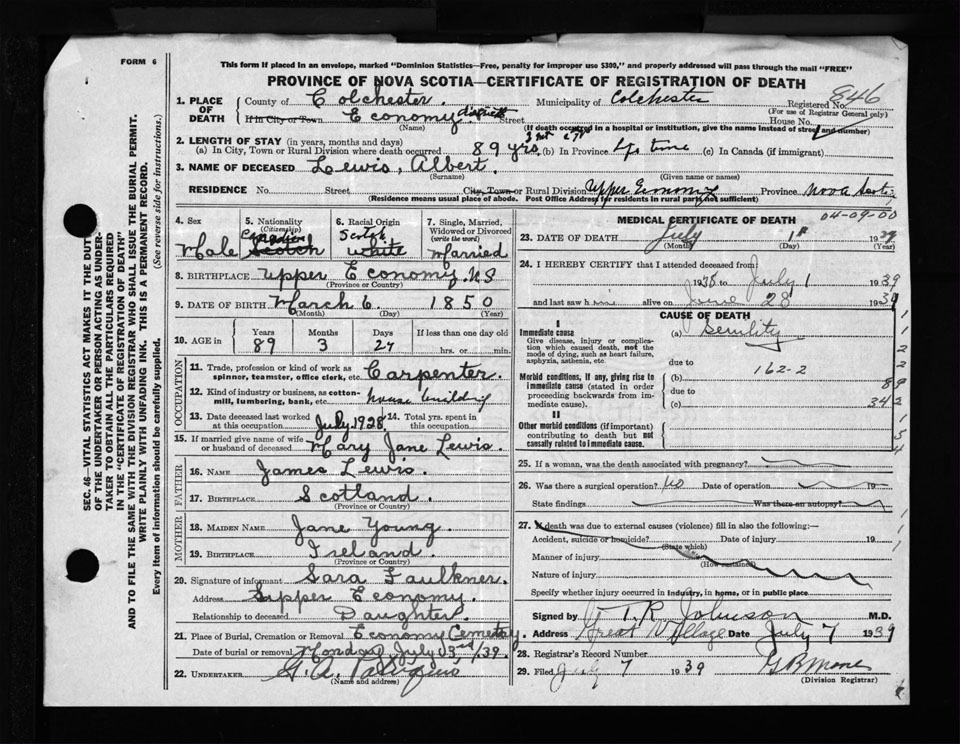 FORM 6
This form if placed in an envelope, marked "Dominion Statistics—Free, penalty for improper use $300," and properly addressed will pass through the mail "FREE"
PROVINCE OF NOVA SCOTIA—CERTIFICATE OF REGISTRATION OF DEATH
1. PLACE OF DEATH County of Colchester. Municipality of Colchester Registered No. 846
(For use of Registrar General only)
If in City or Town Economy district Street House No.
(Name) (If death occurred in a hospital or institution, give the name instead of street and number)
2. LENGTH OF STAY (in years, months and days)
(a) In City, Town or Rural Division where death occurred 89 yrs. (b) In Province Life time (c) In Canada (if immigrant)
3. NAME OF DECEASED Lewis, Albert.
(Surname) (Given name or names)
RESIDENCE No. Street City, Town or Rural Division Upper Economy Province Nova Scotia
(Residence means usual place of abode. Post Office Address for residents in rural parts not sufficient)
4. Sex Male
5. Nationality (Citizenship) Canadian Scotch
6. Racial Origin Scotch White
7. Single, Married, Widowed or Divorced (write the word) Married
8. BIRTHPLACE Upper Economy. N.S
(Province or Country)
9. DATE OF BIRTH March 6. 1850
(Month) (Day) (Year)
10. AGE in Years 89 Months 3 Days 27 If less than one day old hrs. or min.
OCCUPATION
11. Trade, profession or kind of work as spinner, teamster, office clerk, etc. Carpenter.
12. Kind of industry or business, as cotton-mill, lumbering, bank, etc. house building
13. Date deceased last worked at this occupation July 1928. 14. Total yrs. spent in this occupation
15. If married give name of wife or husband of deceased Mary Jane Lewis.
FATHER
16. NAME James Lewis.
17. BIRTHPLACE Scotland.
(Province or Country)
MOTHER
18. MAIDEN NAME Jane Young.
19. BIRTHPLACE Ireland.
(Province or Country)
20. Signature of informant Sara Faulkner.
Address Upper Economy.
Relationship to deceased Daughter.
21. Place of Burial, Cremation or Removal Economy Cemetery.
Date of burial or removal Monday, July 3rd/39.
22. UNDERTAKER G. A.
(Name and address)
MEDICAL CERTIFICATE OF DEATH
04-09-00
23. DATE OF DEATH July 1st 1939
(Month) (Day) (Year)
24. I HEREBY CERTIFY that I attended deceased from
1938 to July 1 1939
and last saw him alive on June 28 1939
CAUSE OF DEATH
I
Immediate cause (a) Senility
Give disease, injury or complication which caused death, not the mode of dying, such as heart failure, asphyxia, asthenia, etc.
due to
162-2
Morbid conditions, if any, giving rise to immediate cause (stated in order proceeding backwards from immediate cause).
(b)
due to 89
(c) 342
II
Other morbid conditions (if important) contributing to death but not causally related to immediate cause.
25. If a woman, was the death associated with pregnancy?
26. Was there a surgical operation? no Date of operation 19
State findings Was there an autopsy?
27. If death was due to external causes (violence) fill in also the following:—
Accident, suicide or homicide? Date of injury 19
(State which)
Manner of injury
(How sustained)
Nature of injury
Specify whether injury occurred in industry, in home, or in public place
Signed by T. R. Johnson M.D.
Address Great Village Date July 7 1939
28. Registrar's Record Number
29. Filed July 7 1939
(Division Registrar)
SEC. 46—VITAL STATISTICS ACT MAKES THE DUTY
OF THE UNDERTAKER OR PERSON ACTING AS UNDER-
TAKER TO OBTAIN ALL THE PARTICULARS REQUIRED
IN THE "CERTIFICATE OF REGISTRATION OF DEATH"
AND TO FILE THE SAME WITH THE DIVISION REGISTRAR WHO SHALL ISSUE THE BURIAL PERMIT.
WRITE PLAINLY WITH UNFADING INK. THIS IS A PERMANENT RECORD.
Every item of information should be carefully supplied. (See reverse side for instructions.)